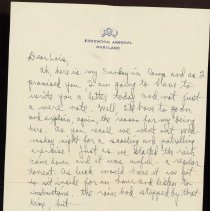 EDGEWOOD ARSENAL
MARYLAND
Dear Lois,
Oh, here is my Sunday in Camp and as I
promised you, I am going to have to
write you a letter today and not just
a mere note. Well I'll have to go on
and explain, again, the reason for my being
here. As you recall we went out last
Tuesday night for a scouting and patrolling
Just as we started the rain
came down and it was awful - a regular
torrent. As luck would have it we had
to sit inside for an hour and listen to
instructions the rain had stopped by that
time, but